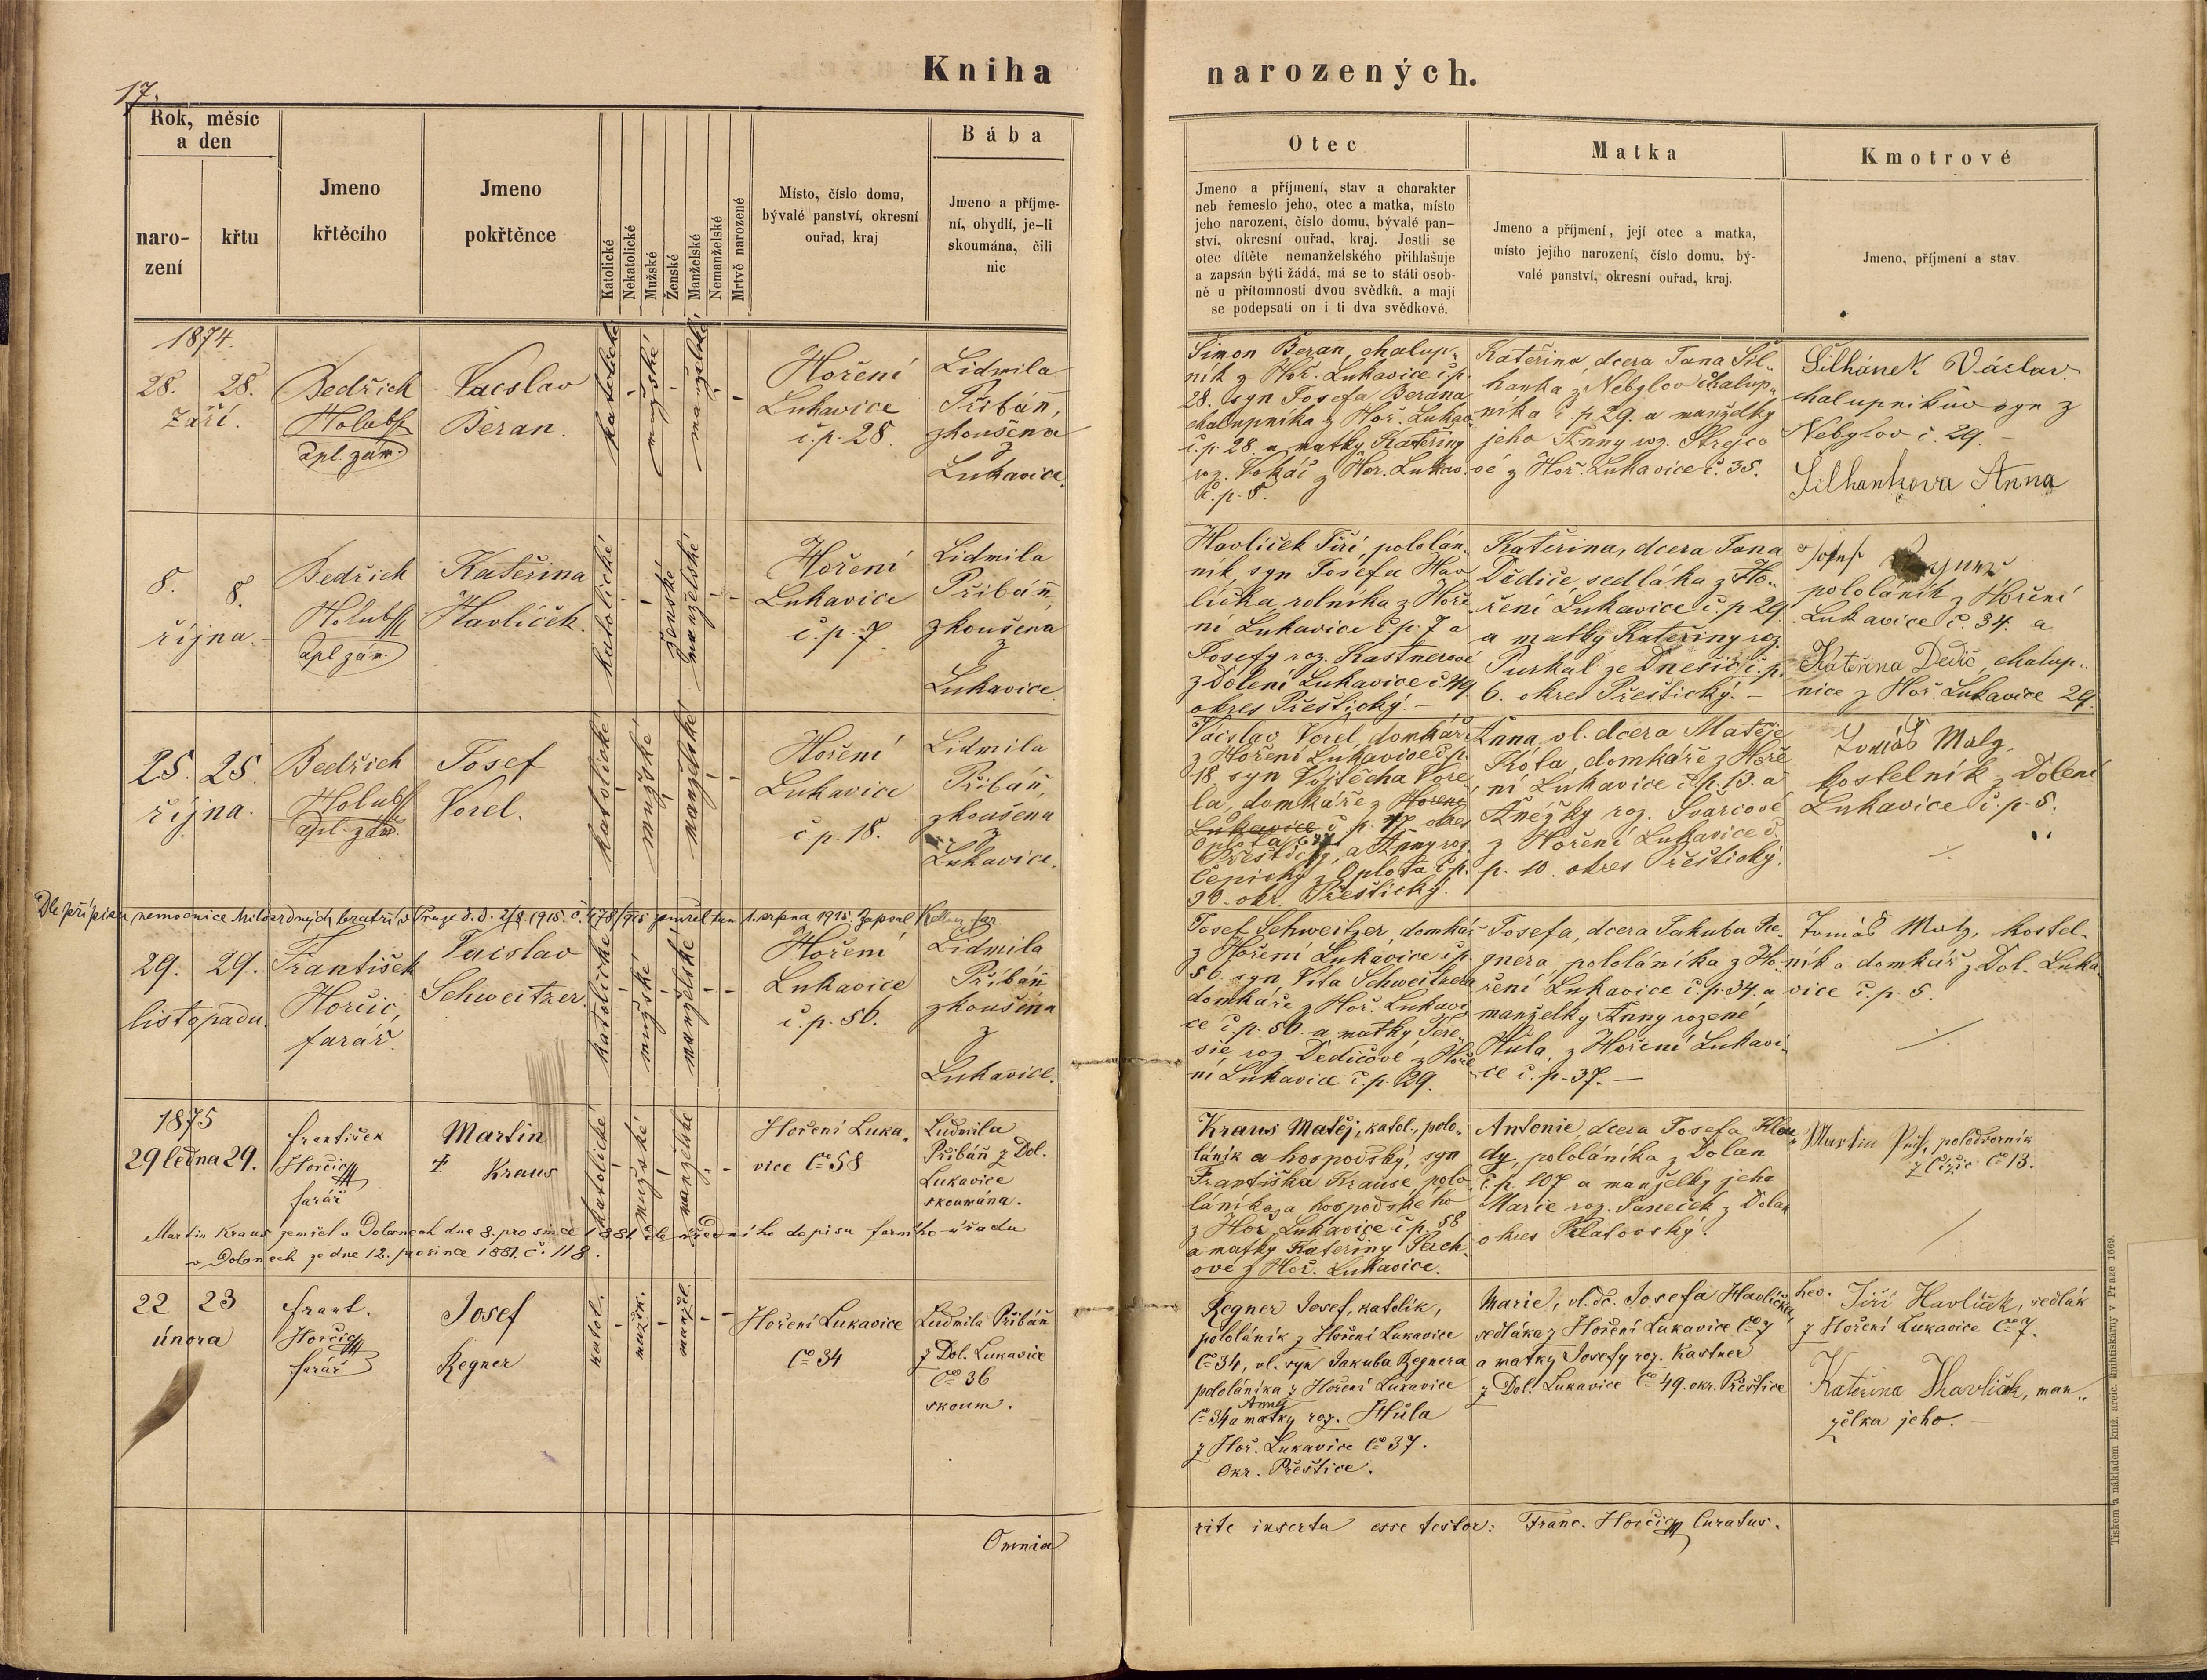 17.
Kniha narozených.
Rok, měsíc a den
naro-
zení
křtu
Jmeno
křtěcího
Jmeno
pokřtěnce
Katolické
Nekatolické
Mužské
Ženské
Manželské
Nemanželské
Mrtvě narozené
Místo, číslo domu,
bývalé panství, okresní
ouřad, kraj
Bába
Jmeno a příjme-
ní, obydlí, je-li
skoumána, čili
nic
Otec
Jmeno a příjmení, stav a charakter
neb řemeslo jeho, otec a matka, místo
jeho narození, číslo domu, bývalé pan-
ství, okresní ouřad, kraj. Jestli se
otec dítěte nemanželského přihlašuje
a zapsán býti žádá, má se to státi osob-
ně u přítomnosti dvou svědků, a mají
se podepsati on i ti dva svědkové.
Matka
Jmeno a příjmení, její otec a matka,
místo jejího narození, číslo domu, bý-
valé panství, okresní ouřad, kraj.
Kmotrové
Jmeno, příjmení a stav.
1874.
28. 28.
Září.
Bedřich
Holub
zpl. zám.
Vacslav
Beran.
katolické
mužské
manželské
Hoření
Lukavice
č. p. 28.
Lidmila
Přibáň,
zkoušena
z
Lukavice.
Šimon Beran, chalup-
ník z Hoř. Lukavice č.p.
28. syn Josefa Berana
chalupníka z Hoř. Lukav.
č.p. 28. a matky Kateřiny
roz. Vokáč z Hor. Lukav.
č. p. 5.
Kateřina, dcera Jana Šil-
hanka z Nebylov chalup-
níka č. p. 29. a manželky
jeho Anny roz. Strejco
vé z Hoř. Lukavice č. 35.
Šilhánek Václav
chalupníkův syn z
Nebylov č. 29. –
Šilhankova Anna
8. 8.
října.
Bedřich
Holub
zpl. zám.
Kateřina
Havlíček.
katolické
ženské
manželské
Hoření
Lukavice
č. p. 7.
Lidmila
Přibáň,
zkoušena
z
Lukavice
Havlíček Jiří, pololán-
ník, syn Josefa Hav-
líčka, rolníka z Hoře
ní Lukavice č.p. 7 a
Josefy roz. Kastnerové
z Dolení Lukavice č. 49.
okres Přeštický. –
Kateřina, dcera Jana
Dědiče, sedláka z Ho-
ření Lukavice č. p. 29.
a matky Kateřiny roz.
Purkat ze Dnešic č.p.
6. okres Přeštický. –
Josef
pololáník z Hoření
Lukavice č. 34. a
Kateřina Dedič, chalup-
nice z Hoř. Lukavice 29.
25. 25.
října.
Bedřich
Holub
zpl. zám.
Josef
Vorel.
katolické
mužské
manželské
Hoření
Lukavice
č. p. 18.
Lidmila
Přibáň,
zkoušena
z
Lukavice.
Vacslav Vorel, domkář
z Hoření Lukavice č.p.
18, syn Vojtěcha Vore
la, domkáře z Hoření
Lukavice č. p. 17 okres
Oplota
Přeštický, a Anny roz.
Čepický z Oplota č.p.
30. okr. Přeštický.
Anna, vl. dcera Matěje
Kóta, domkáře z Hoře
ní Lukavice č. p. 13. a
Anéžky roz. Švarcové
z Hoření Lukavice č.
p. 10. okres Přeštický.
Tomáš Malý,
kostelník z Dolení
Lukavice č. p. 5.
Dle přípisu nemocnice Milosrdných bratří v Praze d. d. 2/8 1915. č. 478/915 zemřel tam 1. srpna 1915. Zapsal
29. 29.
listopadu.
František
Horčic,
farář.
Vacslav
Schweitzer.
katolické
mužské
manželské
Hoření
Lukavice
č. p. 50.
Lidmila
Přibáň
zkoušena
z
Lukavice.
Josef Schweitzer, domkář
z Hoření Lukavice č.p.
50. syn Víta Schweitzera
domkáře z Hoř. Lukavi
ce č. p. 50. a matky Tere-
sie roz. Dědičové z Hoře
ní Lukavice č. p. 29.
Josefa, dcera Jakuba Re-
gnera, pololáníka z Ho-
ření Lukavice č. p. 34. a
manželky Anny rozené
Hůla, z Hoření Lukavi-
ce č. p. 37. –
Tomáš Malý, kostel-
ník a domkář z Dol. Luka
vice č. p. 5.
1875
29 ledna 29.
František
Horčic
farář
Martin
Kraus
katolické
mužské
manželské
Hoření Luka-
vice Čo 58
Ludmila
Přibáň z Dol.
Lukavice
skoumána.
Kraus Matěj, katol., polo-
láník a hospodský, syn
Františka Krause, polo
láníka a hospodského
z Hoř. Lukavice č. p. 58
a matky Kateřiny Serch-
ové z Hoř. Lukavice.
Antonie dcera Josefa Hlou-
dy, pololáníka z Dolan
č. p. 107 a manželky jeho
Marie roz. Janeček z Dolan
okres Klatovský.
Martin, polodvorník
z Čižic Čo 13.
Martin Kraus zemřel v Dolanech dne 8. prosince 1881 dle úředního dopisu farního úřadu
v Dolanech ze dne 12. prosince 1881. č. 118.
22 23
února
Frant.
Horčic
farář
Josef
Regner
katol.
mužk.
manžel.
Hoření Lukavice
Čo 34
Ludmila Přibáň
z Dol. Lukavice
Čo 36
skoum.
Regner Josef, katolík,
pololáník z Hoření Lukavice
Čo 34, vl. syn Jakuba Regnera
pololáníka z Hoření Lukavice
Čo 34 a matky Anny roz. Hůla
z Hoř. Lukavice Čo 37.
Okr. Přeštice.
Marie, vl. dc. Josefa Havlíčka,
sedláka z Hoření Lukavice Čo 7
a matky Josefy roz. Kastner
z Dol. Lukavice Čo 49. okr. Přeštice
Jiří Havlíček, sedlák
z Hoření Lukavice Čo 7.
Kateřina Havlíček, man-
želka jeho. –
Omnia rite inserta esse testor: Franc. Horčic Curatus.
Tiskem a nákladem kníž. arcib. knihtiskárny v Praze 1669.